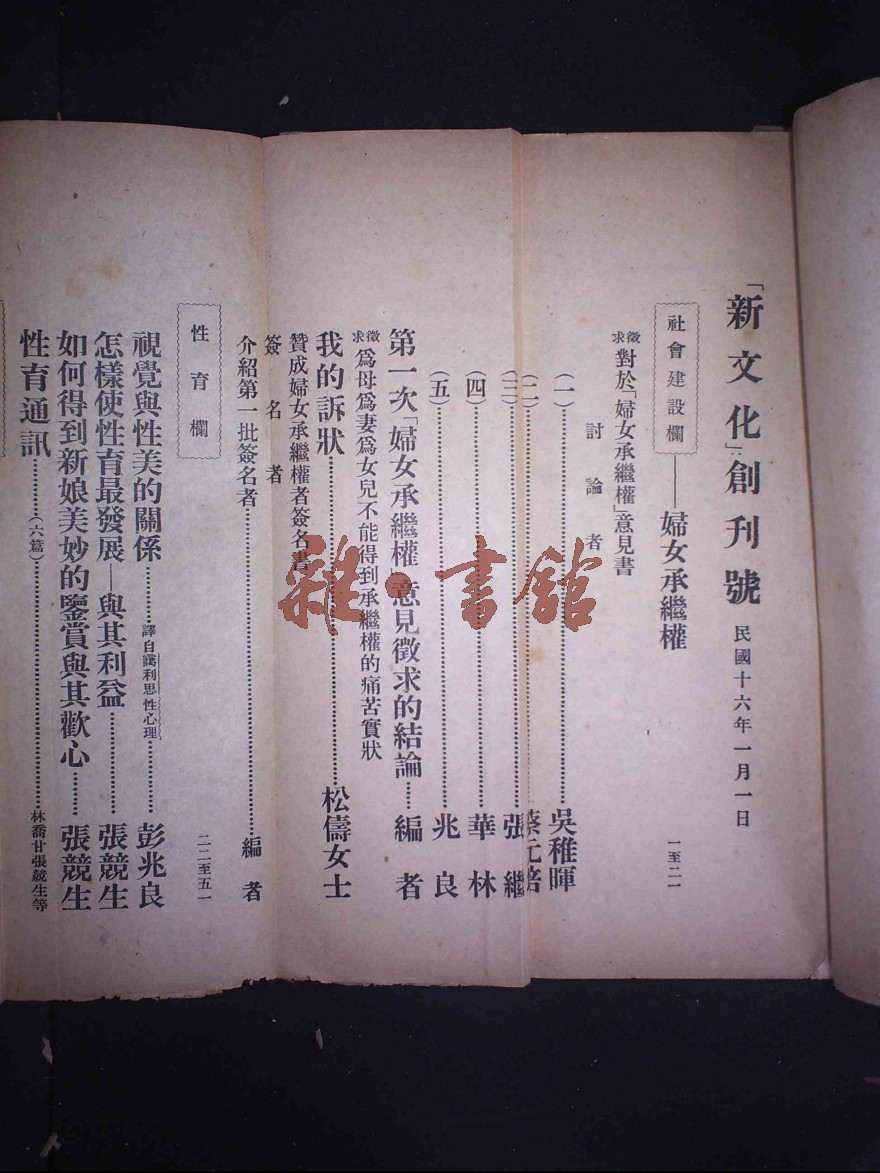 「新文化」創刊號 民國十六年一月一日
社會建設欄——婦女承繼權 一至二一
徵求對於「婦女承繼權」意見書
討論者
(一)……吳稚暉
(二)……蔡元培
(三)……張繼
(四)……華林
(五)……兆良
第一次「婦女承繼權」意見徵求的結論……編者
徵求爲母爲妻爲女兒不能得到承繼權的痛苦實狀
我的訴狀……松儔女士
贊成婦女承繼權者簽名書
簽名者
介紹第一批簽名者……編者
性育欄 二二至五一
視覺與性美的關係……譯自靄利思性心理……彭兆良
怎樣使性育最發展—與其利益……張競生
如何得到新娘美妙的鑒賞與其歡心……張競生
性育通訊……(六篇)……林喬甘張競生等
雜·書館